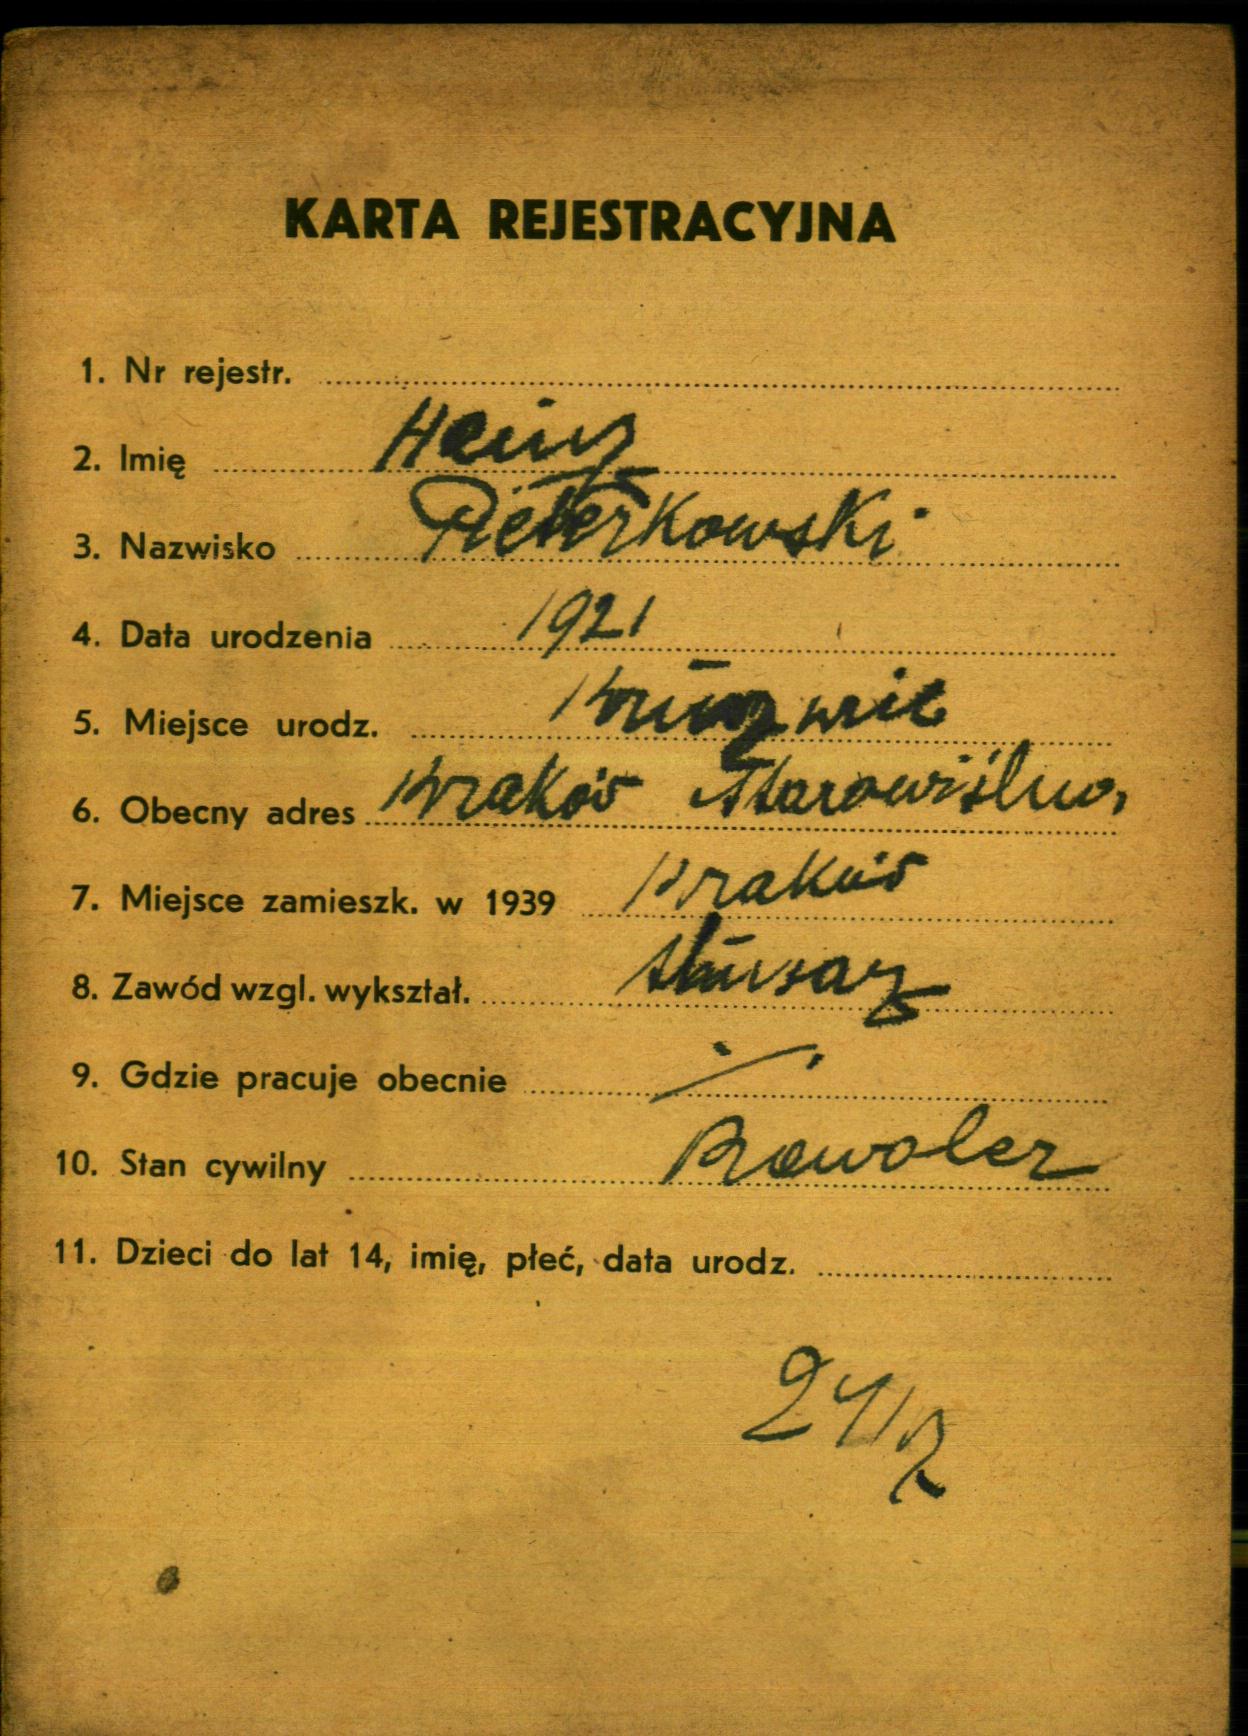 KARTA REJESTRACYJNA
1. Nr rejestr.
2. Imię Heinz
3. Nazwisko Peterkowski
4. Data urodzenia 1921
5. Miejsce urodz.
6. Obecny adres Kraków Starowiślna,
7. Miejsce zamieszk. w 1939 Kraków
8. Zawód wzgl. wykształ. ślusarz
9. Gdzie pracuje obecnie
10. Stan cywilny Kawaler
11. Dzieci do lat 14, imię, płeć, data urodz.